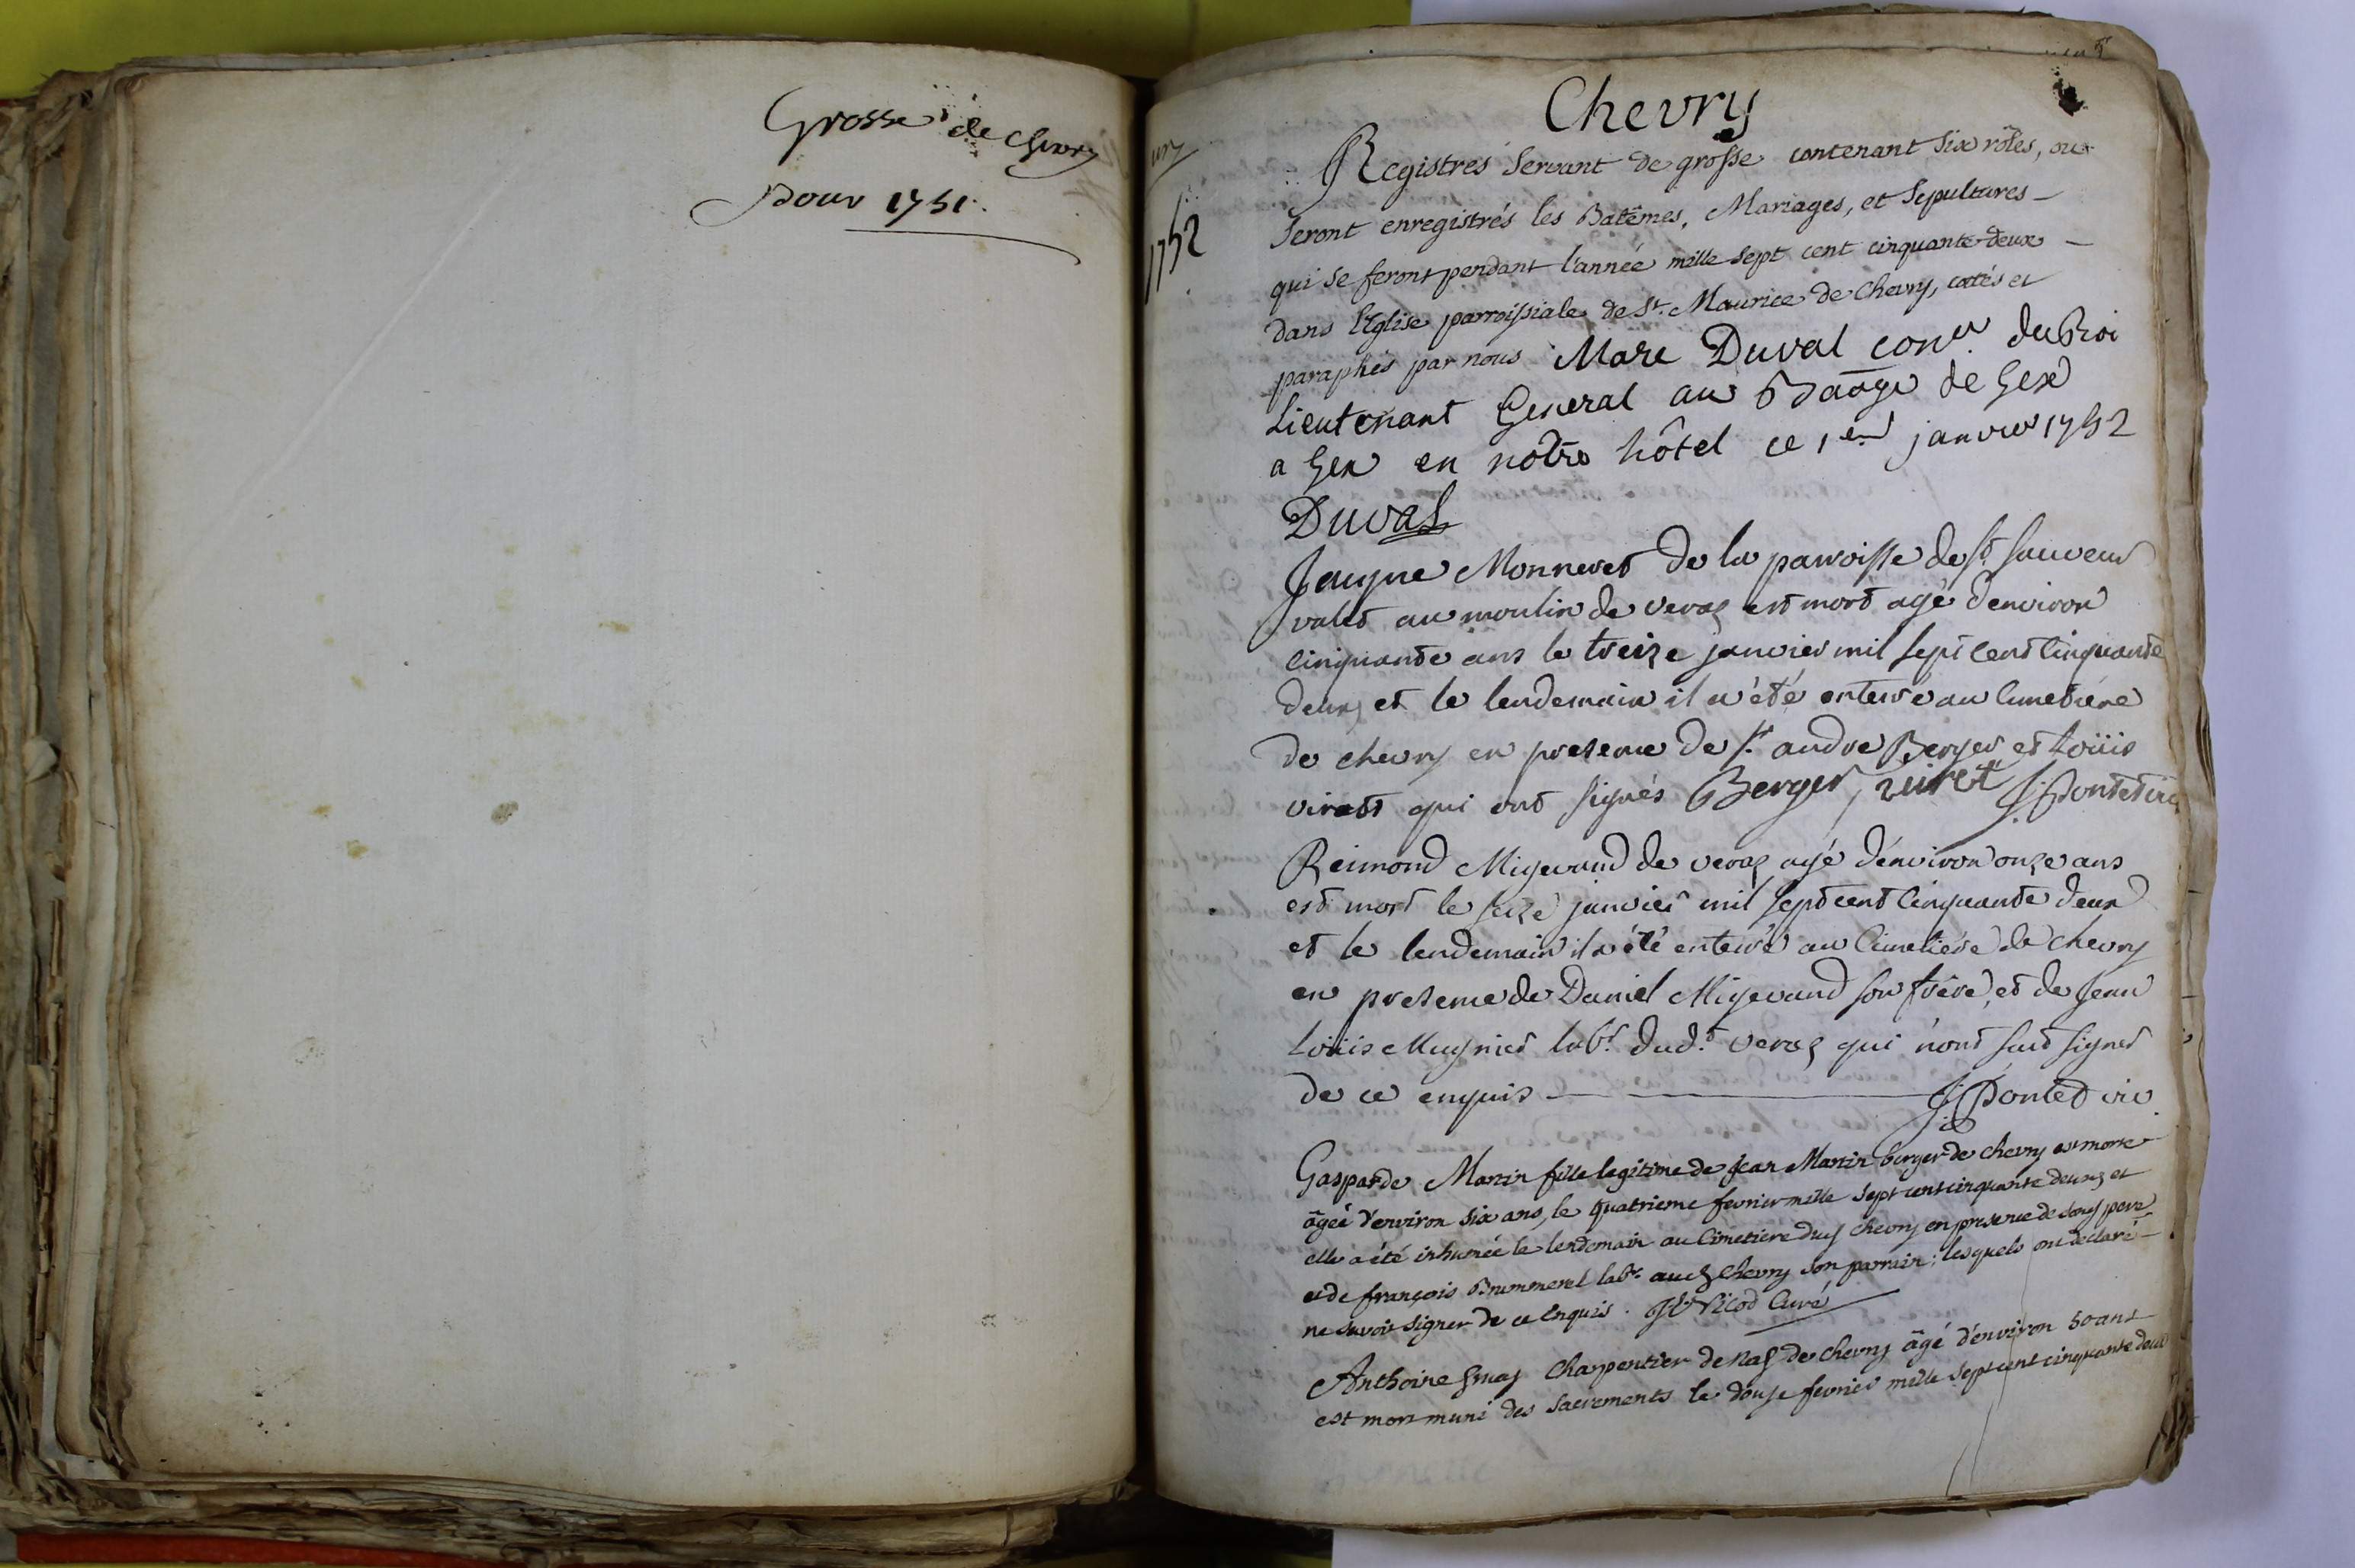 Grosse de Chevry
pour 1751.
1752
Chevry
Registres servant de grosse contenant six rôles, ou
seront enregistrés les Batêmes, Mariages, et Sepultures
qui se feront pendant l'année mille sept cent cinquante deux
dans l'Eglise parroissiale de St. Maurice de Chevry, cottés et
paraphés par nous Marc Duval coner. du Roi
Lieutenant General au Baage de Gex
a Gex en nôtre hôtel ce 1er janvier 1752
Duval
Jacque Monneret de la parroisse de st. sauveur
valet au moulin de veraz est mort agé d'environ
cinquante ans le treize janvier mil sept cent cinquante
deux, et le lendemain il a été enterré au cimetiére
de chevry en presence de sr. andre Berger et Loüis
viret qui ont signés Berger, viret J: Pontet vic
Reimond Migevand de veraz agé d'environ onze ans
est mort le seize janvier mil sept cent cinquante deux
et le lendemain il a été enterré au cimetiére de chevry
en presence de Daniel Migevand son frére, et de Jean
Loüis Mugnier labr. dud.t veraz qui n'ont sait signer
de ce enquis J: Pontet vic.
Gasparde Martin fille legitime de Jean Martin berger de chevry est morte
âgée d'environ six ans, le quatrieme fevrier mille sept cent cinquante deux, et
elle a été inhumée le lendemain au Cimetiere dud chevry en presence de son père
et de françois Brummerel labr. aud Chevry son parrain; lesquels ont declaré
ne savoir signer de ce enquis. Nicod Curé
Anthoine Charpentier de Naz de chevry âgé d'environ 50 ans
est mort muni des sacrements le douze fevrier mille sept cent cinquante deux